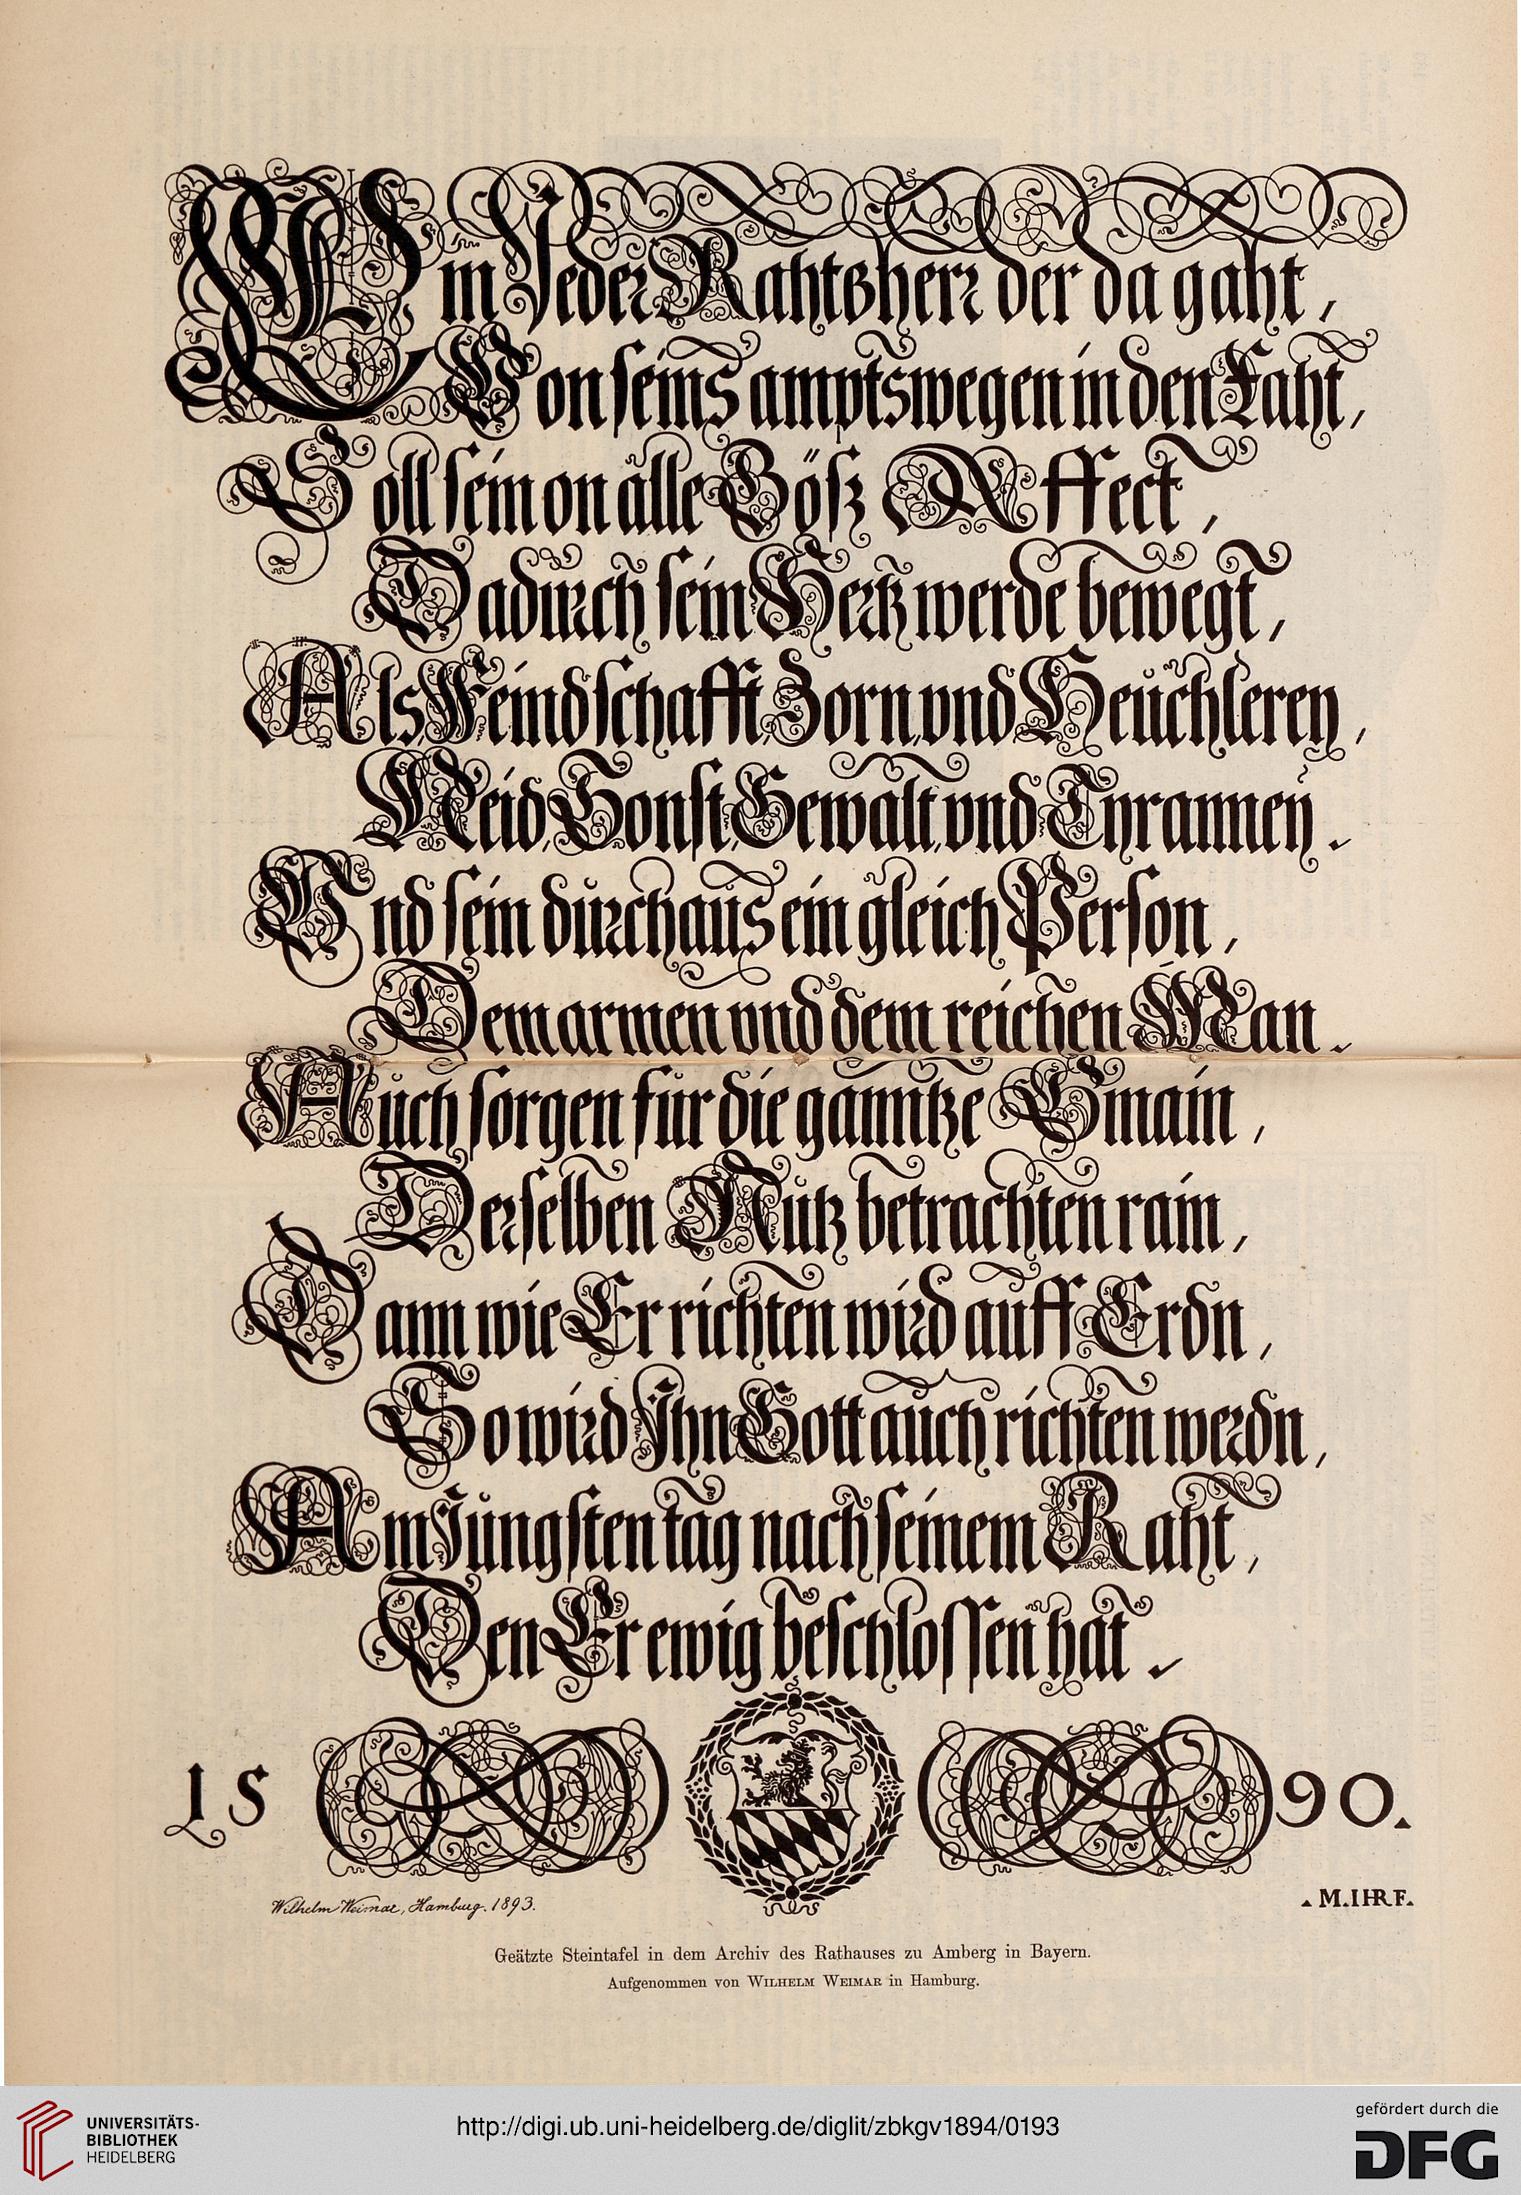 Ein Jeder Rahtßherr der da gaht,
Von seins amptswegen in den Raht,
Soll sein on alle Böß Affect,
Dadůrch sein Hertz werde bewegt,
Als Feindschafft, Zorn, vnd Heůchlereÿ,
Neid, Gonst, Gewalt, vnd Tyranneÿ.
Vnd sein důrchaůs ein gleich Person,
Dem armen vnd dem reichen Man.
Aůch sorgen fůr die ganntze Gmain,
Derselben Nůtz betrachten rain,
Dann wie Er richten wird aůff Erdn,
So wird Ihn Gott aůch richten werdn,
Am Jůngsten tag nach seinem Raht,
Den Er ewig beschlossen hat.
15 90.
Wilhelm Weimar, Hamburg. 1893.
.M.IHR.F.
Geätzte Steintafel in dem Archiv des Rathauses zu Amberg in Bayern.
Aufgenommen von WILHELM WEIMAR in Hamburg.
UNIVERSITÄTS-
BIBLIOTHEK
HEIDELBERG
http://digi.ub.uni-heidelberg.de/diglit/zbkgv1894/0193
gefördert durch die
DFG